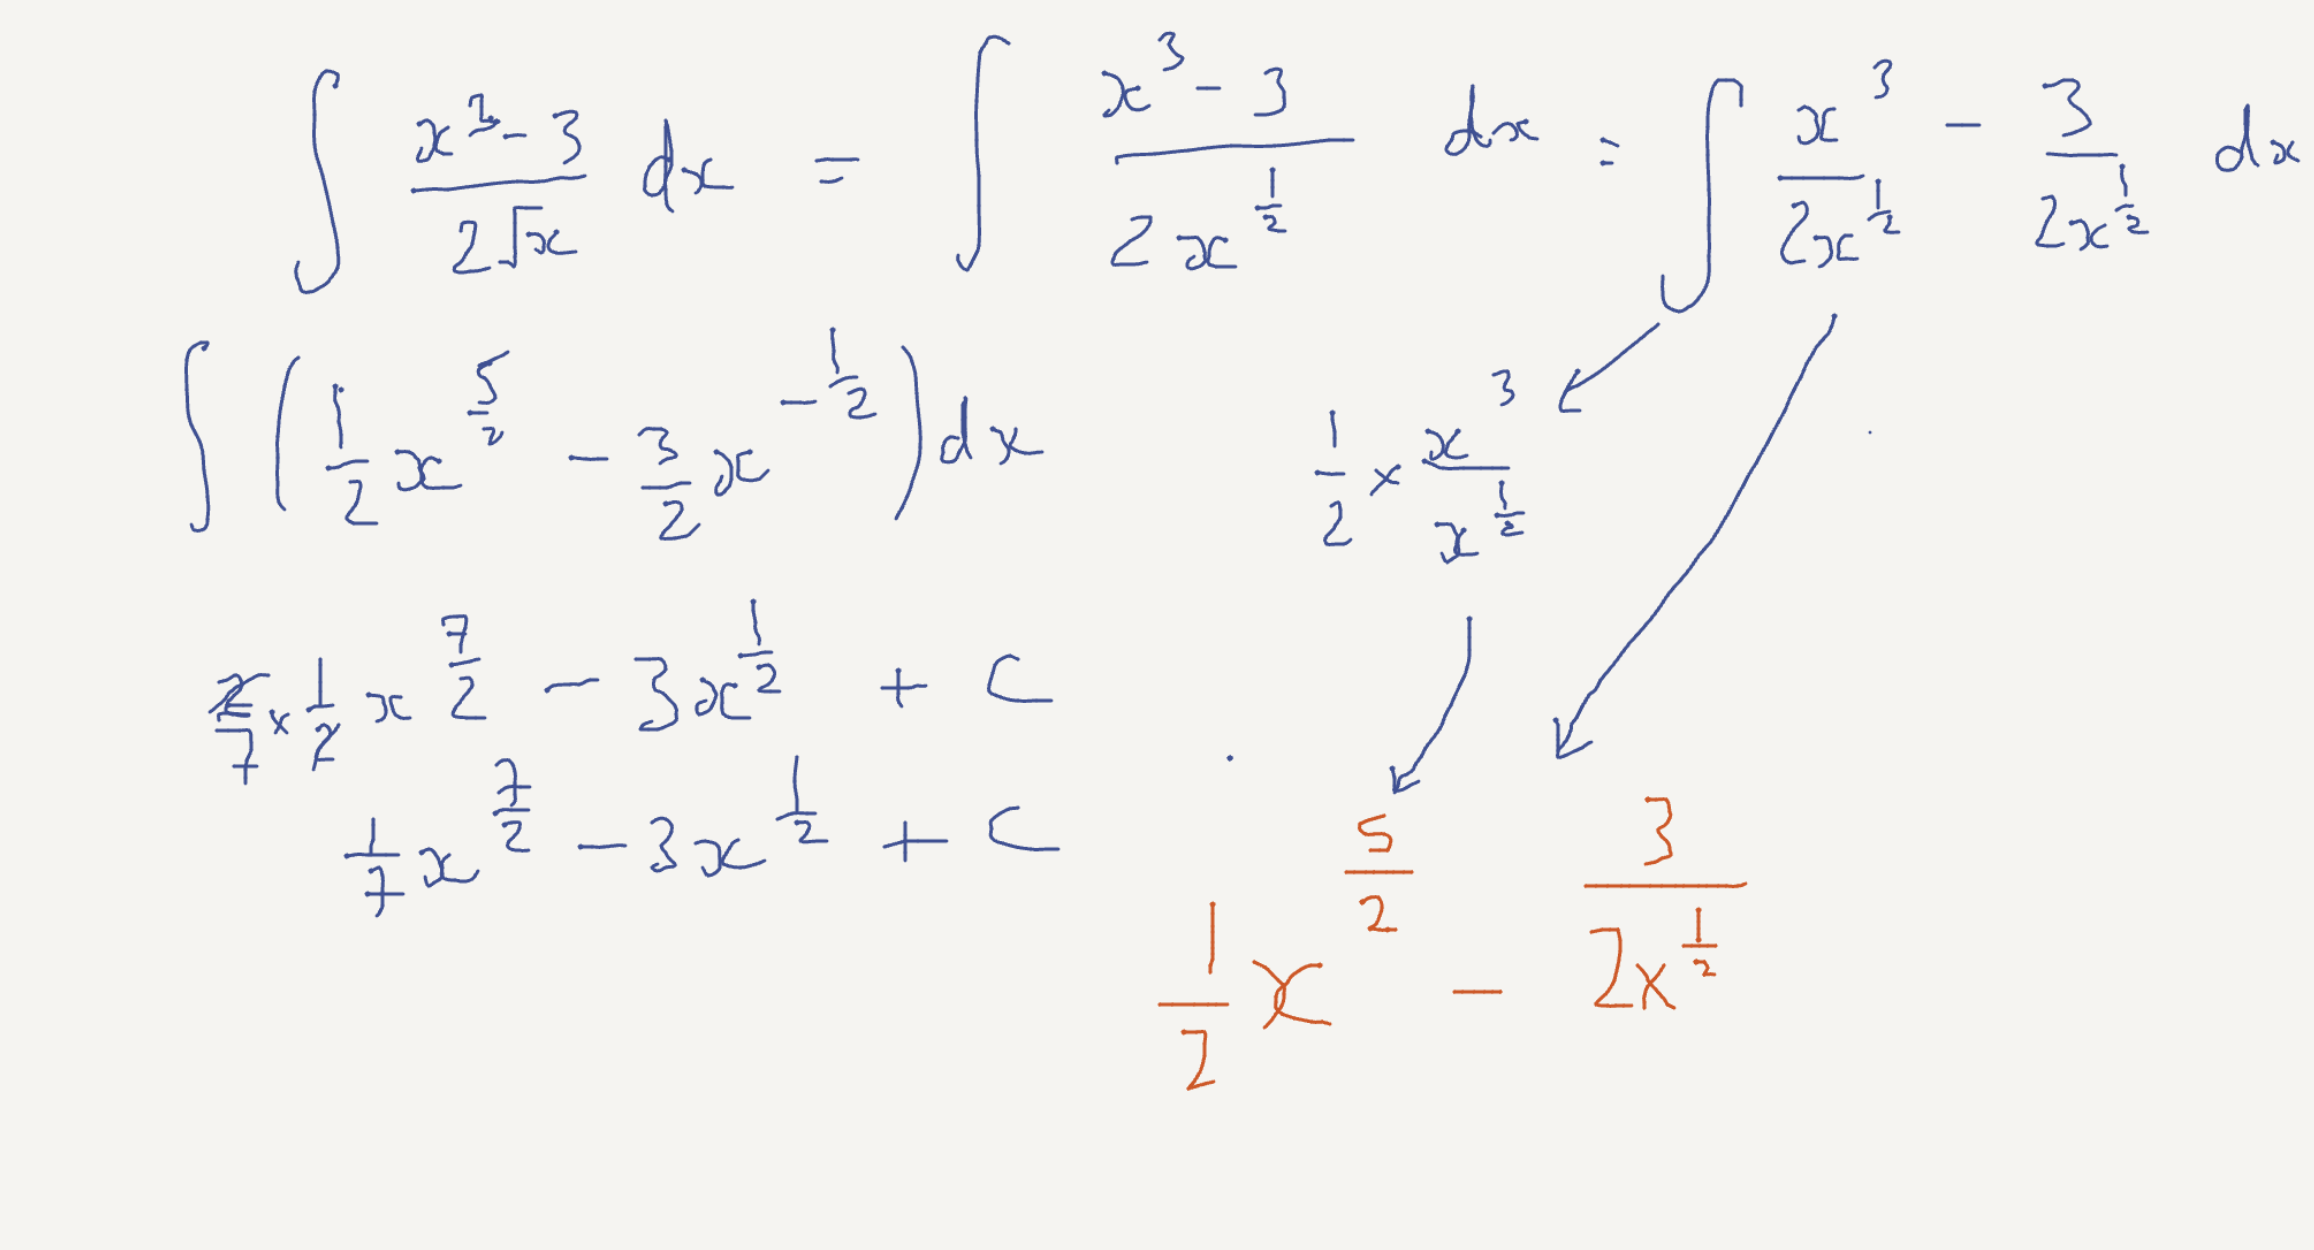 ∫ (x³ - 3)/(2√x) dx = ∫ (x³ - 3)/(2x^(1/2)) dx = ∫ x³/(2x^(1/2)) - 3/(2x^(1/2)) dx
∫ (1/2 x^(5/2) - 3/2 x^(-1/2)) dx
1/2 × x³/x^(1/2)
2/7 × 1/2 x^(7/2) - 3x^(1/2) + C
1/7 x^(7/2) - 3x^(1/2) + C
1/2 x^(5/2) - 3/(2x^(1/2))